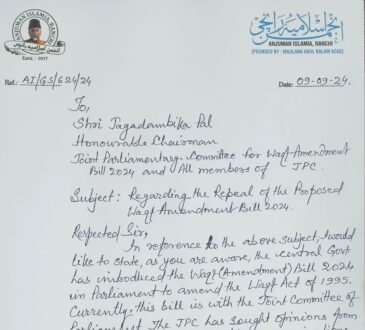 ANJUMAN ISLAMIA, RANCHI
Estd. : 1917
ANJUMAN ISLAMIA, RANCHI
(FOUNDED BY : MAULANA ABUL KALAM AZAD)
Ref.: AI/GS/624/24
Date: 09-09-24.
To,
Shri Jagadambika Pal
Honourable Chairman
Joint Parliamentary Committee for Waqf Amendment
Bill 2024 and All members of JPC.
Subject: Regarding the Repeal of the Proposed
Waqf Amendment Bill 2024.
Respected Sir,
In reference to the above subject, I would
like to state, as you are aware, the central Govt.
has introduced the Waqf (Amendment) Bill 2024
in Parliament to amend the Waqf Act of 1995.
Currently, this bill is with the Joint Committee of
The JPC has sought opinions from